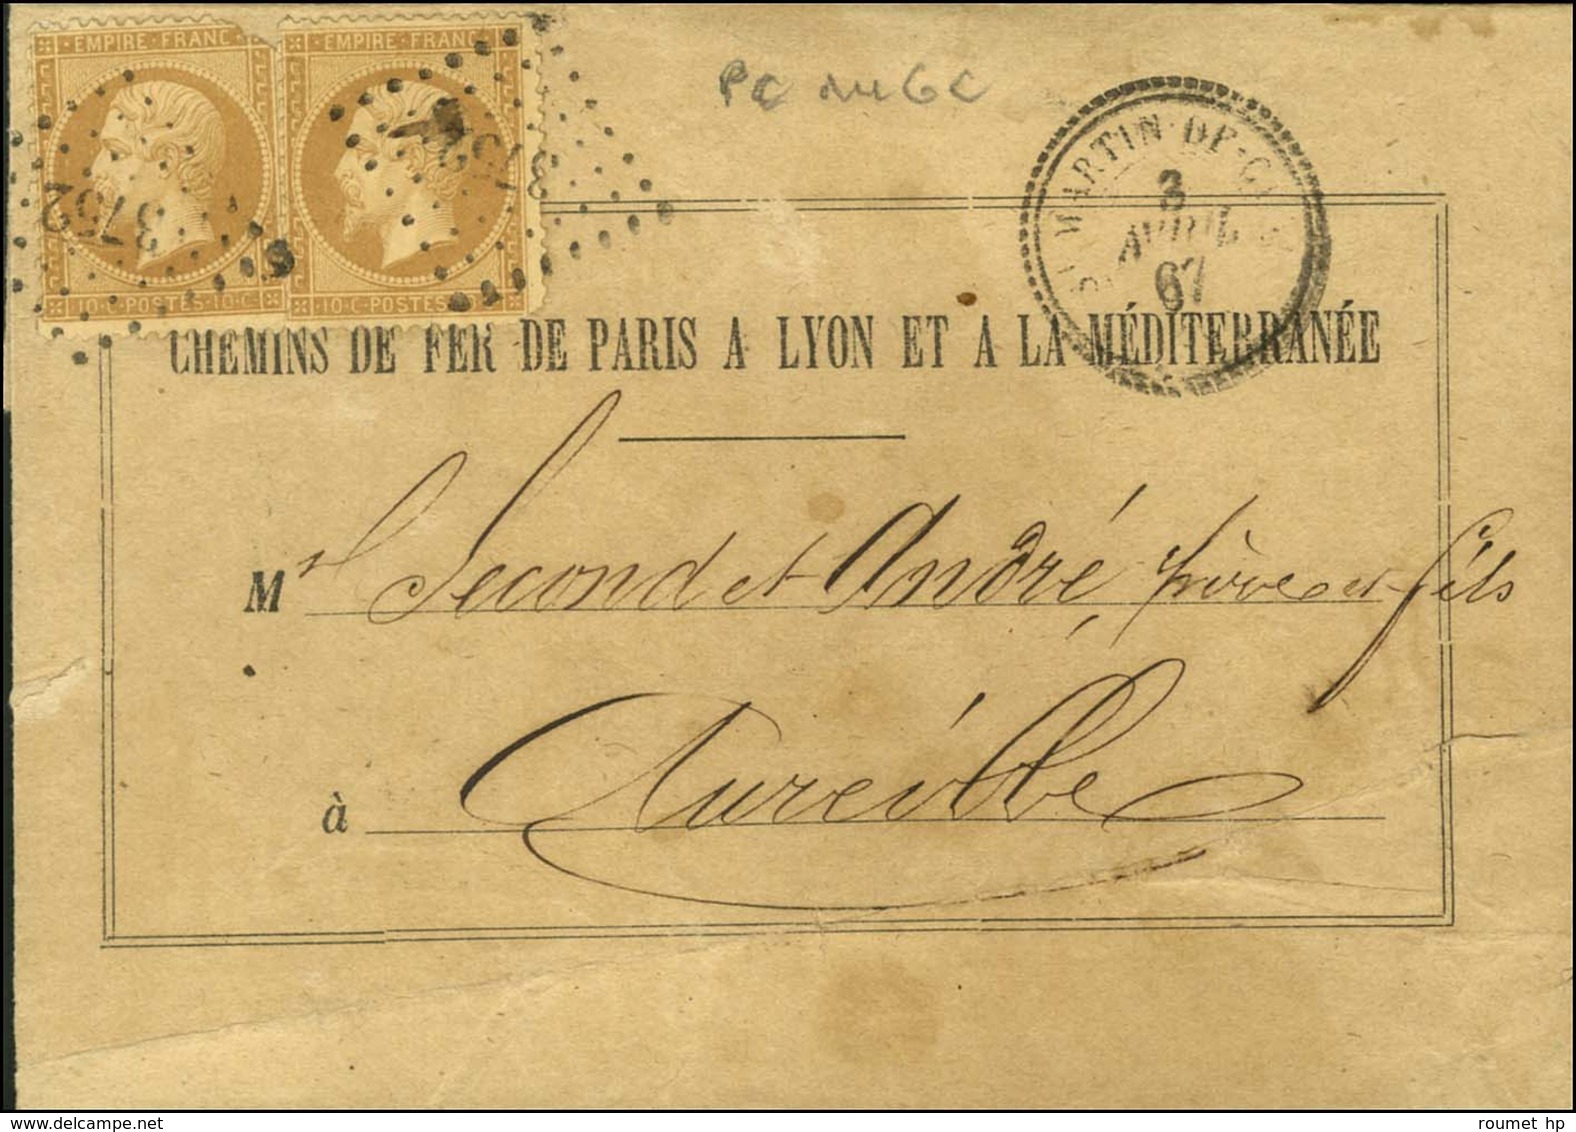 EMPIRE · FRANC
EMPIRE · FRANC
3752
10·C·POSTES·10·C
10·C·POSTES
PC du GC
MARTIN·DE·C
3
AVRIL
67
CHEMINS DE FER DE PARIS A LYON ET A LA MÉDITERRANÉE
M Second et André père et fils
à Aureille
roumet hp